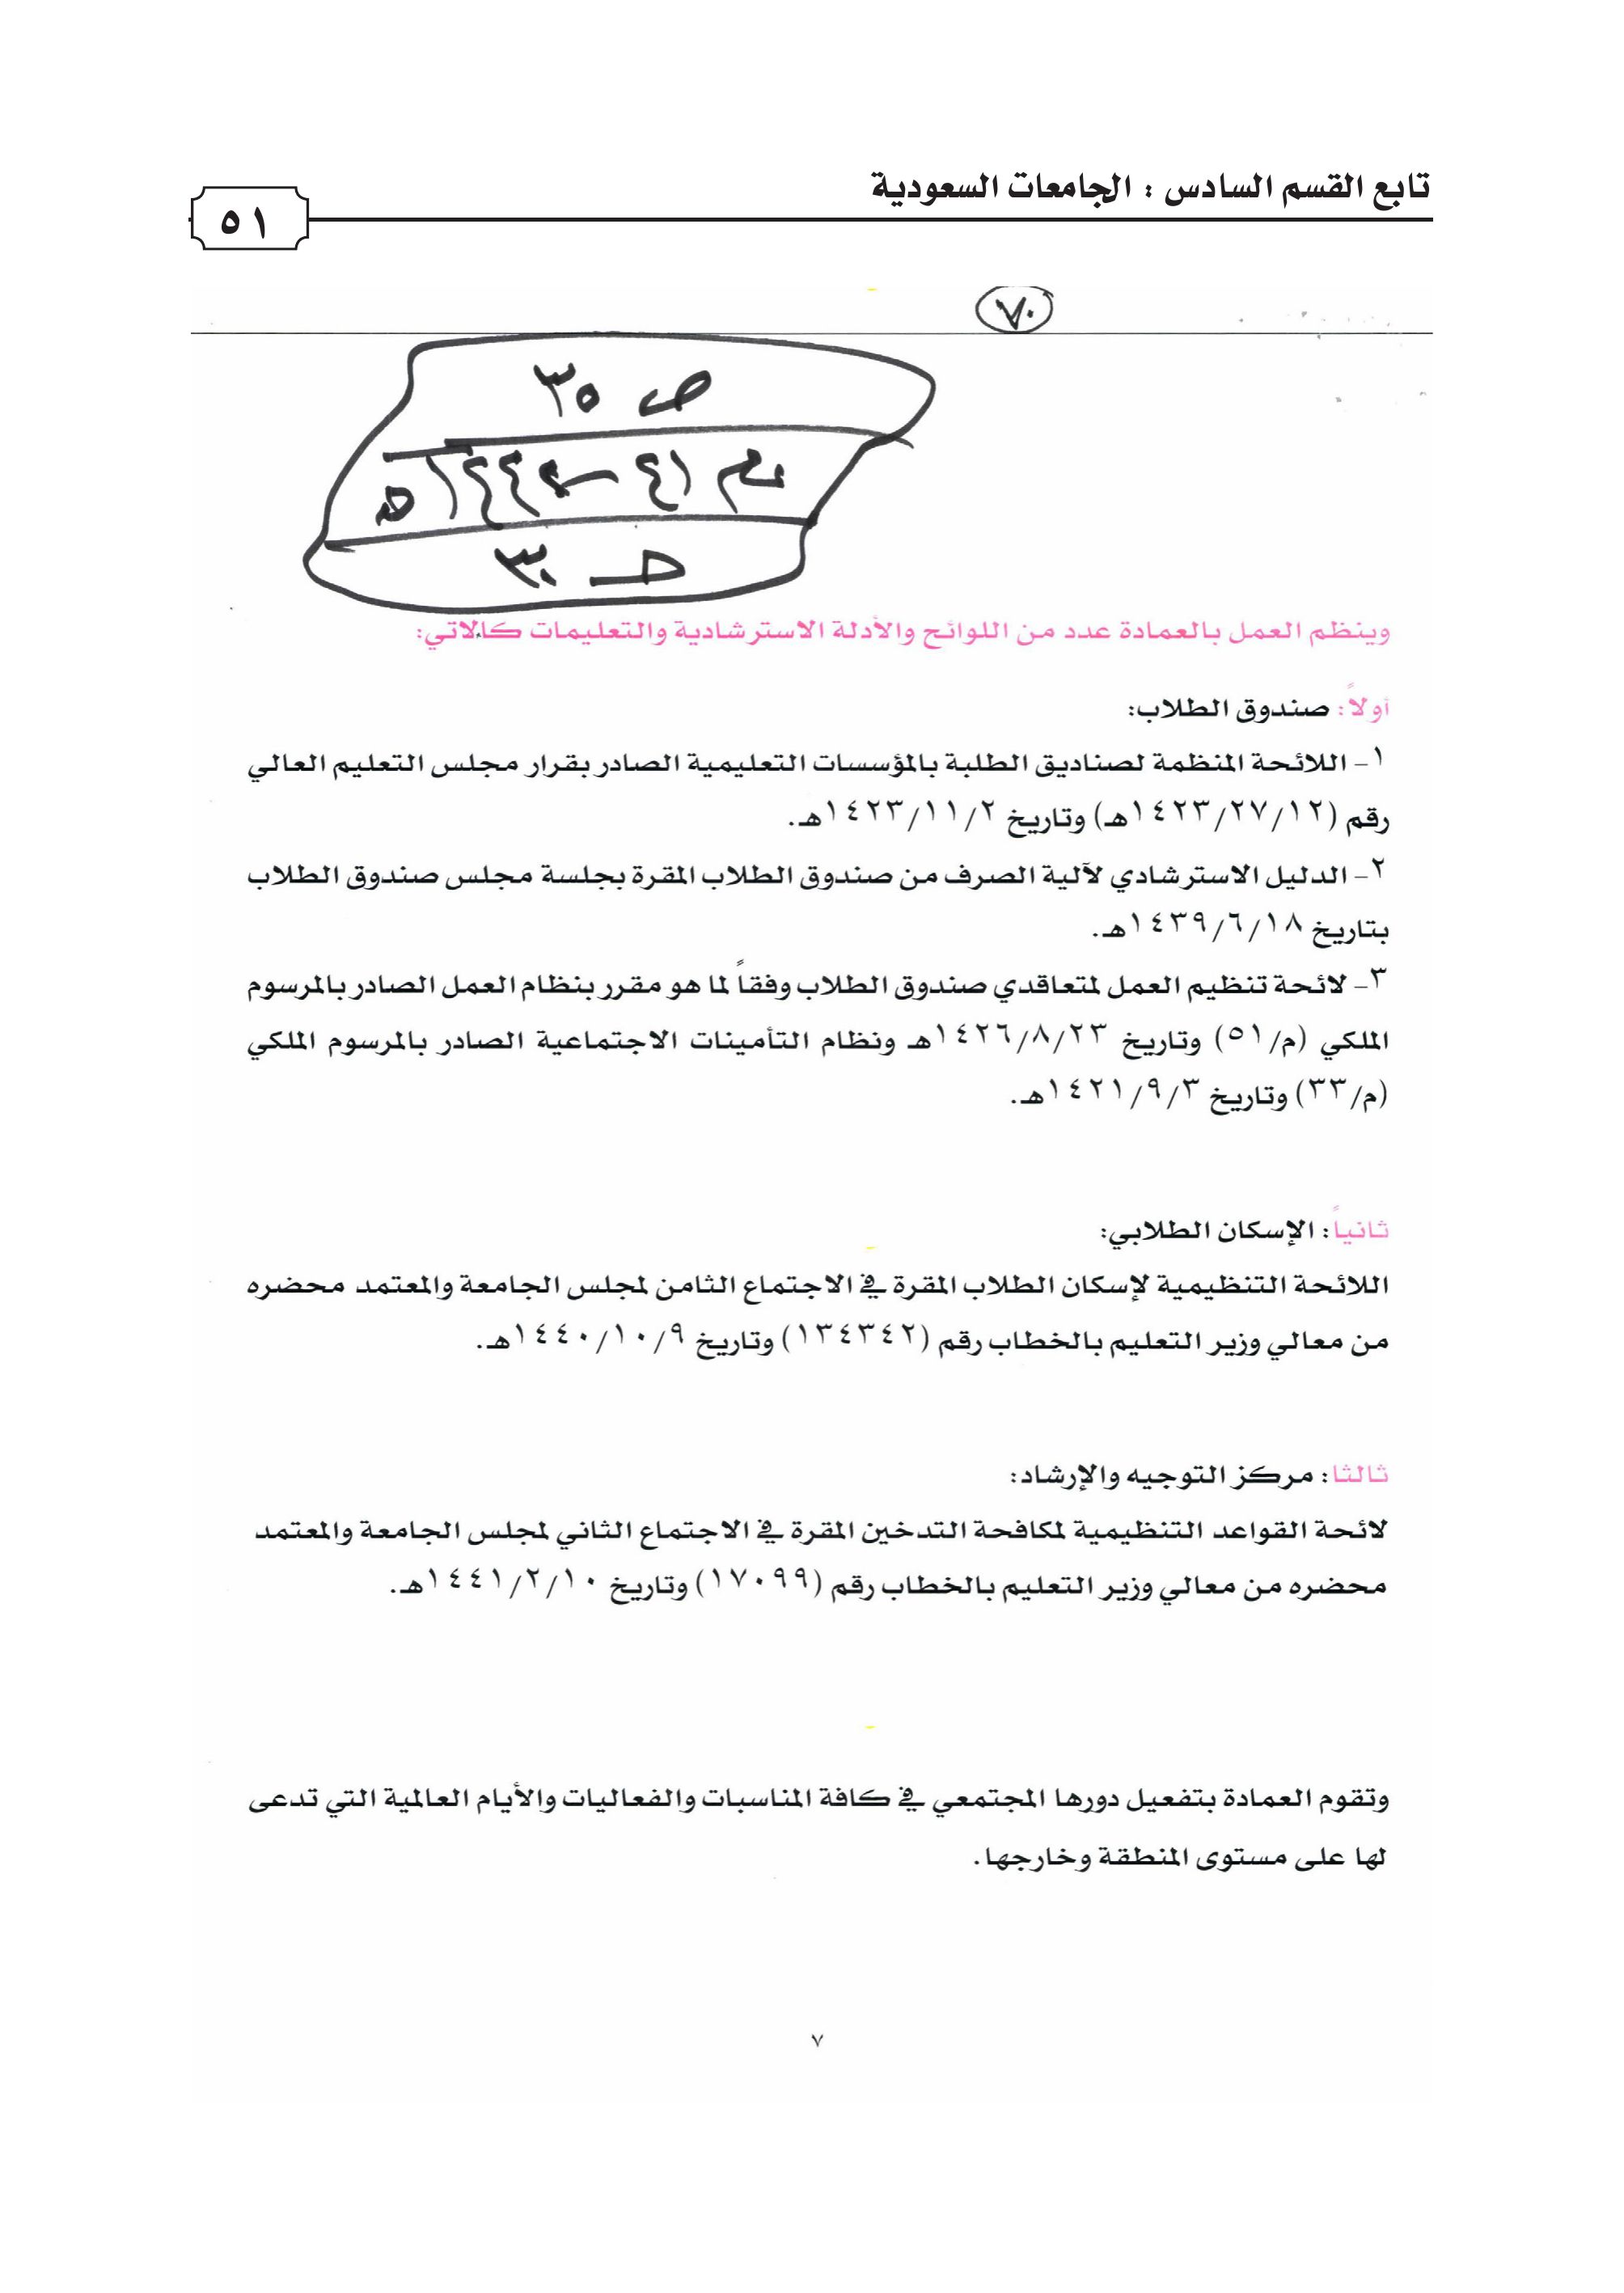 تابع القسم السادس : الجامعات السعودية
٥١
٧٠
ص ٣٥
١٤٤٢هـ
ط ٣٠
وينظم العمل بالعمادة عدد من اللوائح والأدلة الاسترشادية والتعليمات كالاتي:
أولاً: صندوق الطلاب:
١- اللائحة المنظمة لصناديق الطلبة بالمؤسسات التعليمية الصادر بقرار مجلس التعليم العالي
رقم (١٤٢٣/٢٧/١٢هـ) وتاريخ ١٤٢٣/١١/٢هـ.
٢- الدليل الاسترشادي لآلية الصرف من صندوق الطلاب المقرة بجلسة مجلس صندوق الطلاب
بتاريخ ١٤٣٩/٦/١٨هـ.
٣- لائحة تنظيم العمل لمتعاقدي صندوق الطلاب وفقاً لما هو مقرر بنظام العمل الصادر بالمرسوم
الملكي (م/٥١) وتاريخ ١٤٢٦/٨/٢٣هـ ونظام التأمينات الاجتماعية الصادر بالمرسوم الملكي
(م/٣٣) وتاريخ ١٤٢١/٩/٣هـ.
ثانياً: الإسكان الطلابي:
اللائحة التنظيمية لإسكان الطلاب المقرة في الاجتماع الثامن لمجلس الجامعة والمعتمد محضره
من معالي وزير التعليم بالخطاب رقم (١٣٤٣٤٢) وتاريخ ١٤٤٠/١٠/٩هـ.
ثالثا: مركز التوجيه والإرشاد:
لائحة القواعد التنظيمية لمكافحة التدخين المقرة في الاجتماع الثاني لمجلس الجامعة والمعتمد
محضره من معالي وزير التعليم بالخطاب رقم (١٧٠٩٩) وتاريخ ١٤٤١/٢/١٠هـ.
وتقوم العمادة بتفعيل دورها المجتمعي في كافة المناسبات والفعاليات والأيام العالمية التي تدعى
لها على مستوى المنطقة وخارجها.
٧